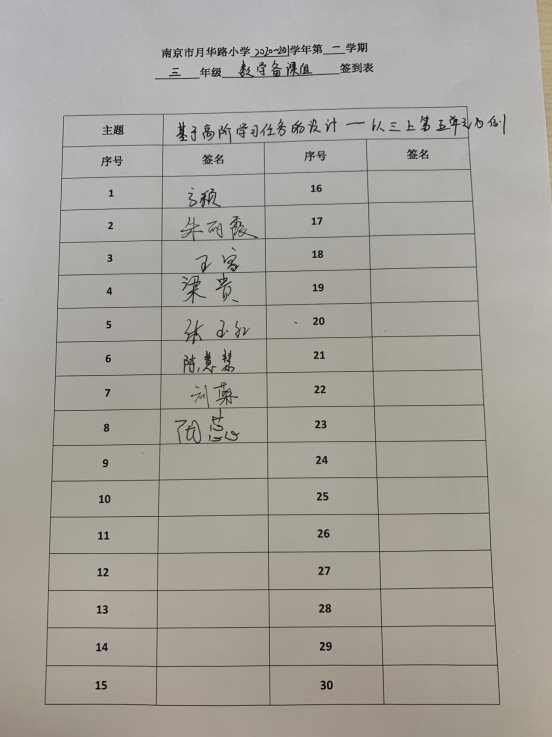 南京市月华路小学2020~2021学年第一学期
三年级 数学备课组 签到表
主题 基于高阶学习任务的设计——以三上第五单元为例
序号 签名 序号 签名
1 方颖 16
2 朱丽霞 17
3 王寓 18
4 梁贵 19
5 张玉红 20
6 陈慧慧 21
7 刘菊 22
8 23
9 24
10 25
11 26
12 27
13 28
14 29
15 30